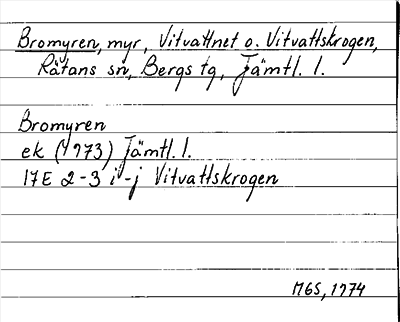 Bromyren, myr, Vitvattnet o. Vitvattskrogen,
Rätans sn, Bergs tg, Jämtl. l.
Bromyren
ek (1973) Jämtl. l.
17E 2-3 i-j Vitvattskrogen
MGS, 1974